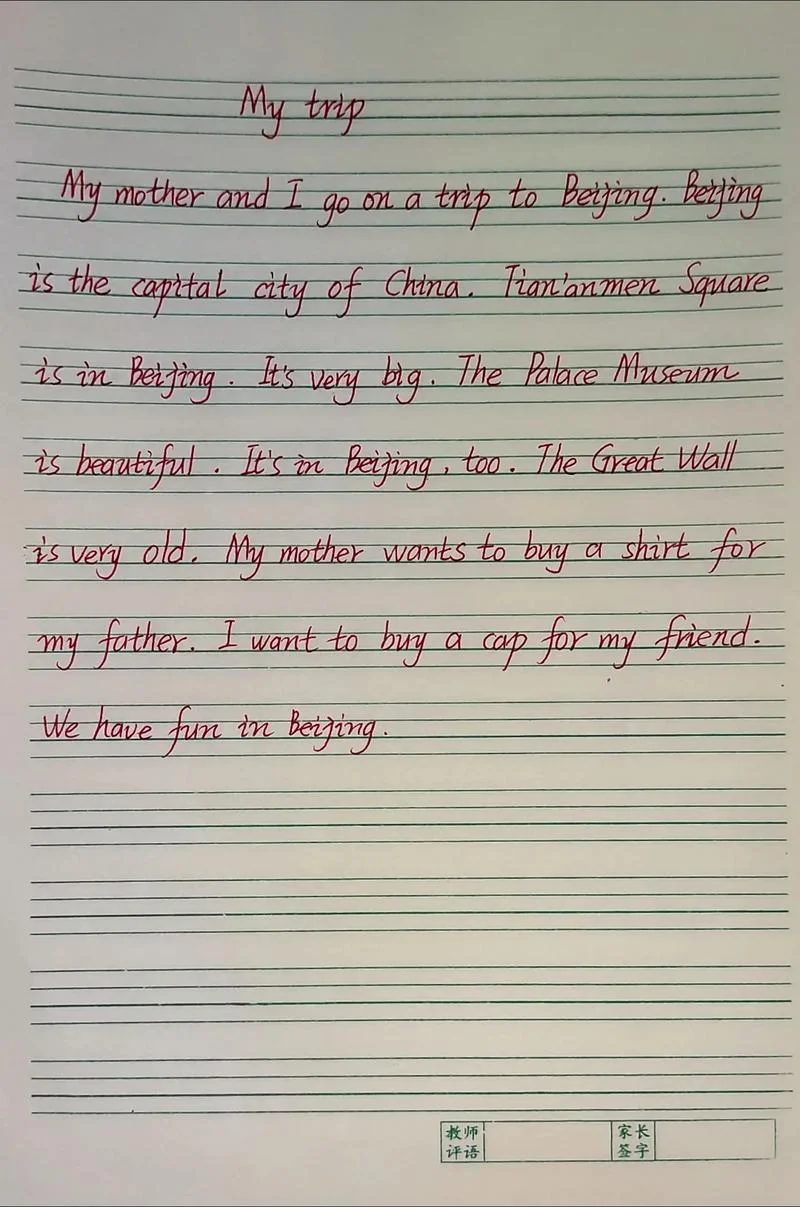 My trip
My mother and I go on a trip to Beijing. Beijing
is the capital city of China. Tian'anmen Square
is in Beijing. It's very big. The Palace Museum
is beautiful. It's in Beijing, too. The Great Wall
is very old. My mother wants to buy a shirt for
my father. I want to buy a cap for my friend.
We have fun in Beijing.
教师 家长
评语 签字